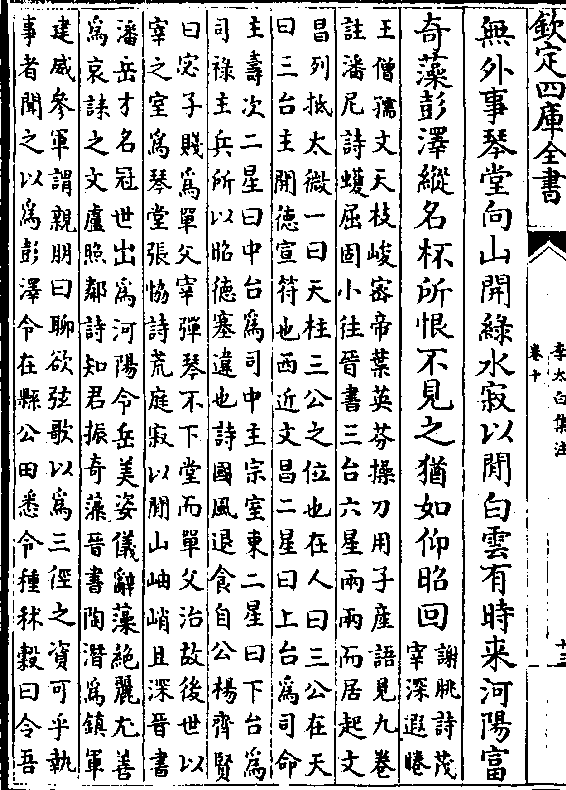 欽定四庫全書
李太白集注
卷十
十三
無外事琴堂向山開綠水寂以閒白雲有時来河陽富
奇藻彭澤縱名杯所恨不見之猶如仰昭回
謝朓詩茂
宰深遐睠
王僧孺文天枝峻密帝葉英芬操刀用子産語見九卷
註潘尼詩蠖屈固小往晉書三台六星兩兩而居起文
昌列抵太微一曰天柱三公之位也在人曰三公在天
曰三台主開德宣符也西近文昌二星曰上台為司命
主壽次二星曰中台為司中主宗室東二星曰下台為
司祿主兵所以昭德塞違也詩國風退食自公楊齊賢
曰宓子賤為單父宰彈琴不下堂而單父治故後世以
宰之室為琴堂張協詩荒庭寂以閒山岫峭且深晉書
潘岳才名冠世出為河陽令岳美姿儀辭藻絶麗尤善
為哀誄之文盧照鄰詩知君振奇藻晉書陶潛為鎮軍
建威參軍謂親朋曰聊欲弦歌以為三徑之資可乎執
事者聞之以為彭澤令在縣公田悉令種秫穀曰令吾